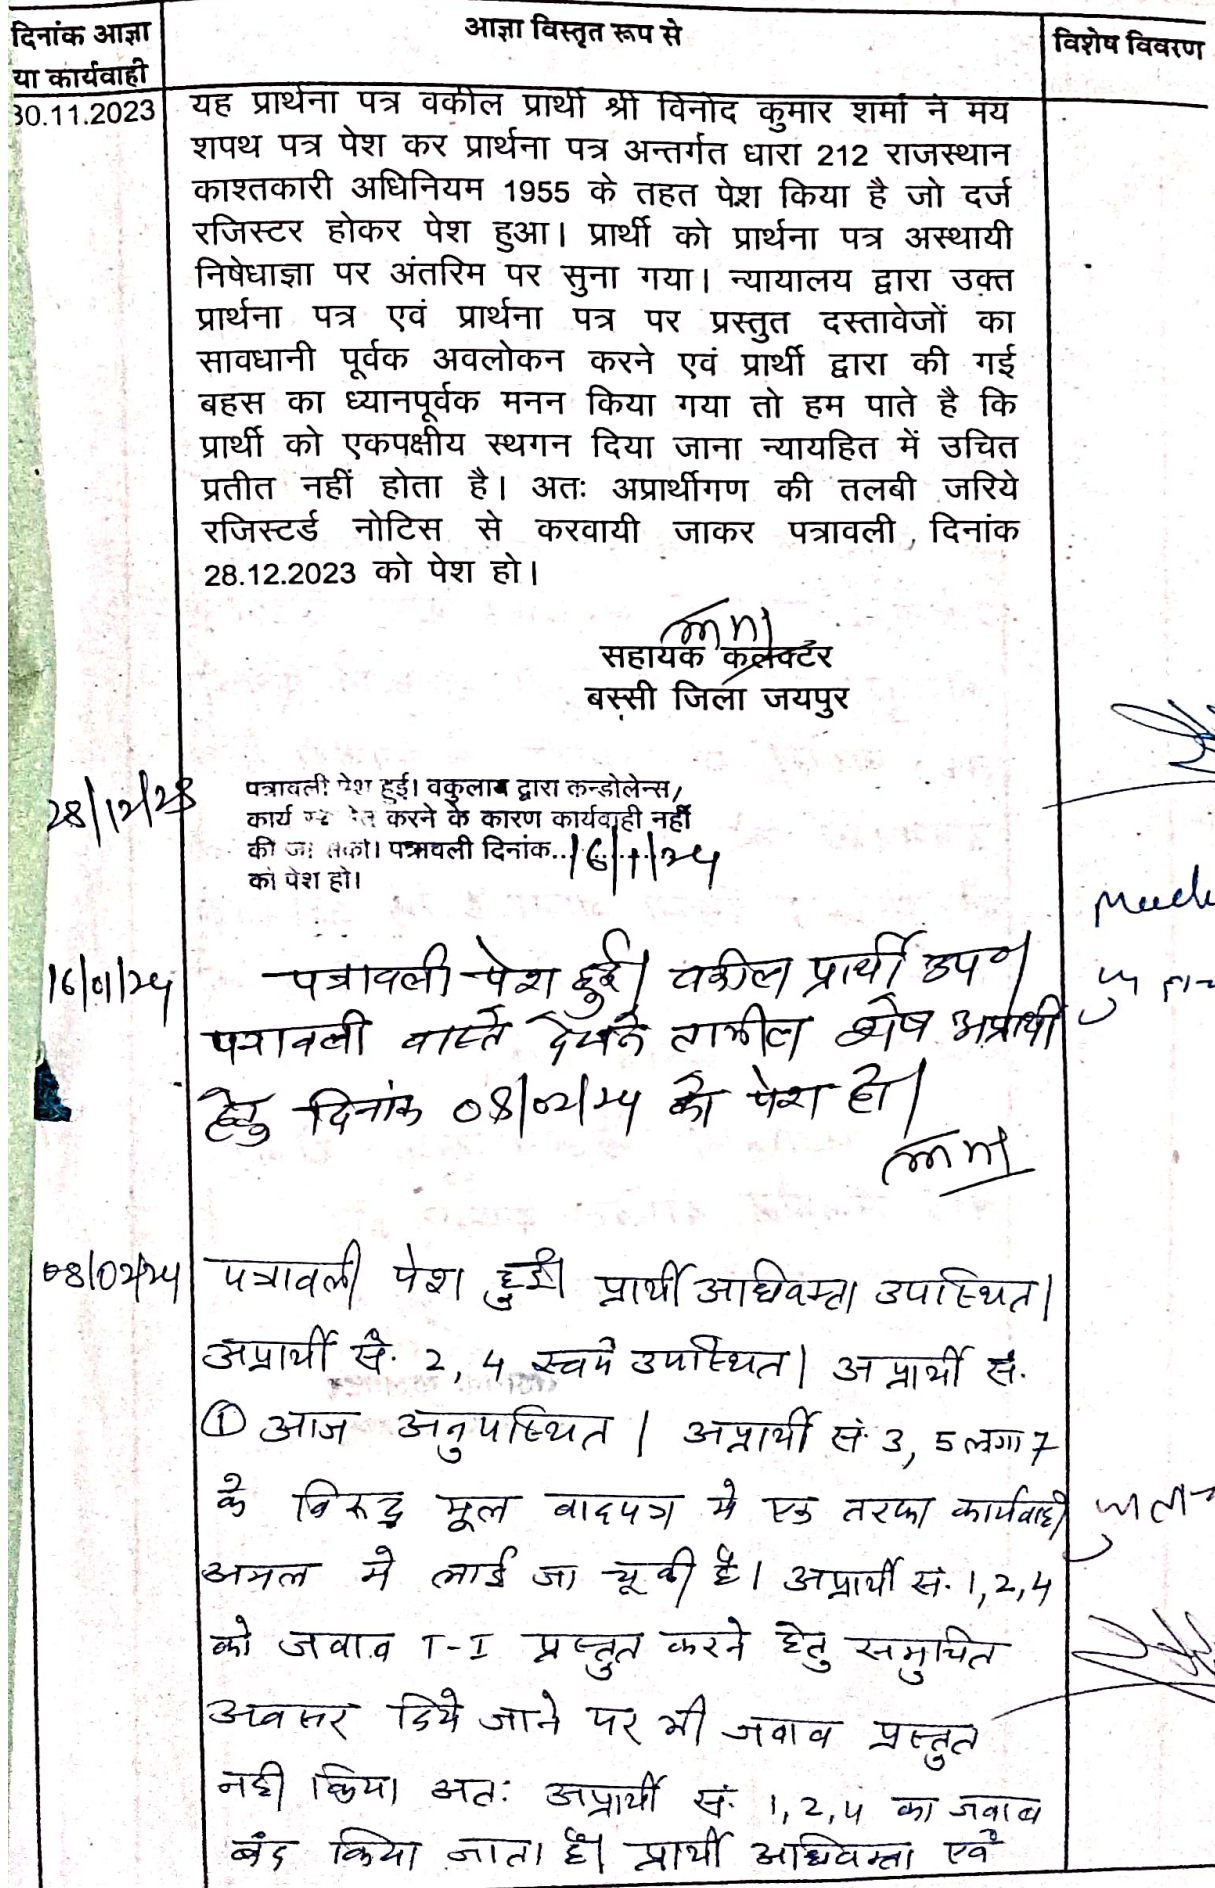 दिनांक आज्ञा
या कार्यवाही
आज्ञा विस्तृत रूप से
विशेष विवरण
30.11.2023
यह प्रार्थना पत्र वकील प्रार्थी श्री विनोद कुमार शर्मा ने मय
शपथ पत्र पेश कर प्रार्थना पत्र अन्तर्गत धारा 212 राजस्थान
काश्तकारी अधिनियम 1955 के तहत पेश किया है जो दर्ज
रजिस्टर होकर पेश हुआ। प्रार्थी को प्रार्थना पत्र अस्थायी
निषेधाज्ञा पर अंतरिम पर सुना गया। न्यायालय द्वारा उक्त
प्रार्थना पत्र एवं प्रार्थना पत्र पर प्रस्तुत दस्तावेजों का
सावधानी पूर्वक अवलोकन करने एवं प्रार्थी द्वारा की गई
बहस का ध्यानपूर्वक मनन किया गया तो हम पाते है कि
प्रार्थी को एकपक्षीय स्थगन दिया जाना न्यायहित में उचित
प्रतीत नहीं होता है। अतः अप्रार्थीगण की तलबी जरिये
रजिस्टर्ड नोटिस से करवायी जाकर पत्रावली दिनांक
28.12.2023 को पेश हो।
सहायक कलेक्टर
बस्सी जिला जयपुर
28/12/23
पत्रावली पेश हुई। वकुलाव द्वारा कन्डोलेन्स/
कार्य करने के कारण कार्यवाही नहीं
की जा सकी। पत्रावली दिनांक...16/1/24
को पेश हो।
16/01/24
पत्रावली पेश हुई। वकील प्रार्थी उप०।
पत्रावली वास्ते देखने तामील शेष अप्रार्थी
हेतु दिनांक 08/02/24 को पेश हो।
08/02/24
पत्रावली पेश हुई। प्रार्थी अधिवक्ता उपस्थित।
अप्रार्थी सं. 2, 4 स्वयं उपस्थित। अप्रार्थी सं.
① आज अनुपस्थित। अप्रार्थी सं. 3, 5 लगा 7
के विरूद्ध मूल वादपत्र मे एक तरफा कार्यवाही
अमल मे लाई जा चूकी है। अप्रार्थी सं. 1,2,4
को जवाब T-I प्रस्तुत करने हेतु समुचित
अवसर दिये जाने पर भी जवाब प्रस्तुत
नही किया। अतः अप्रार्थी सं. 1,2,4 का जवाब
बंद किया जाता है। प्रार्थी अधिवक्ता एवं